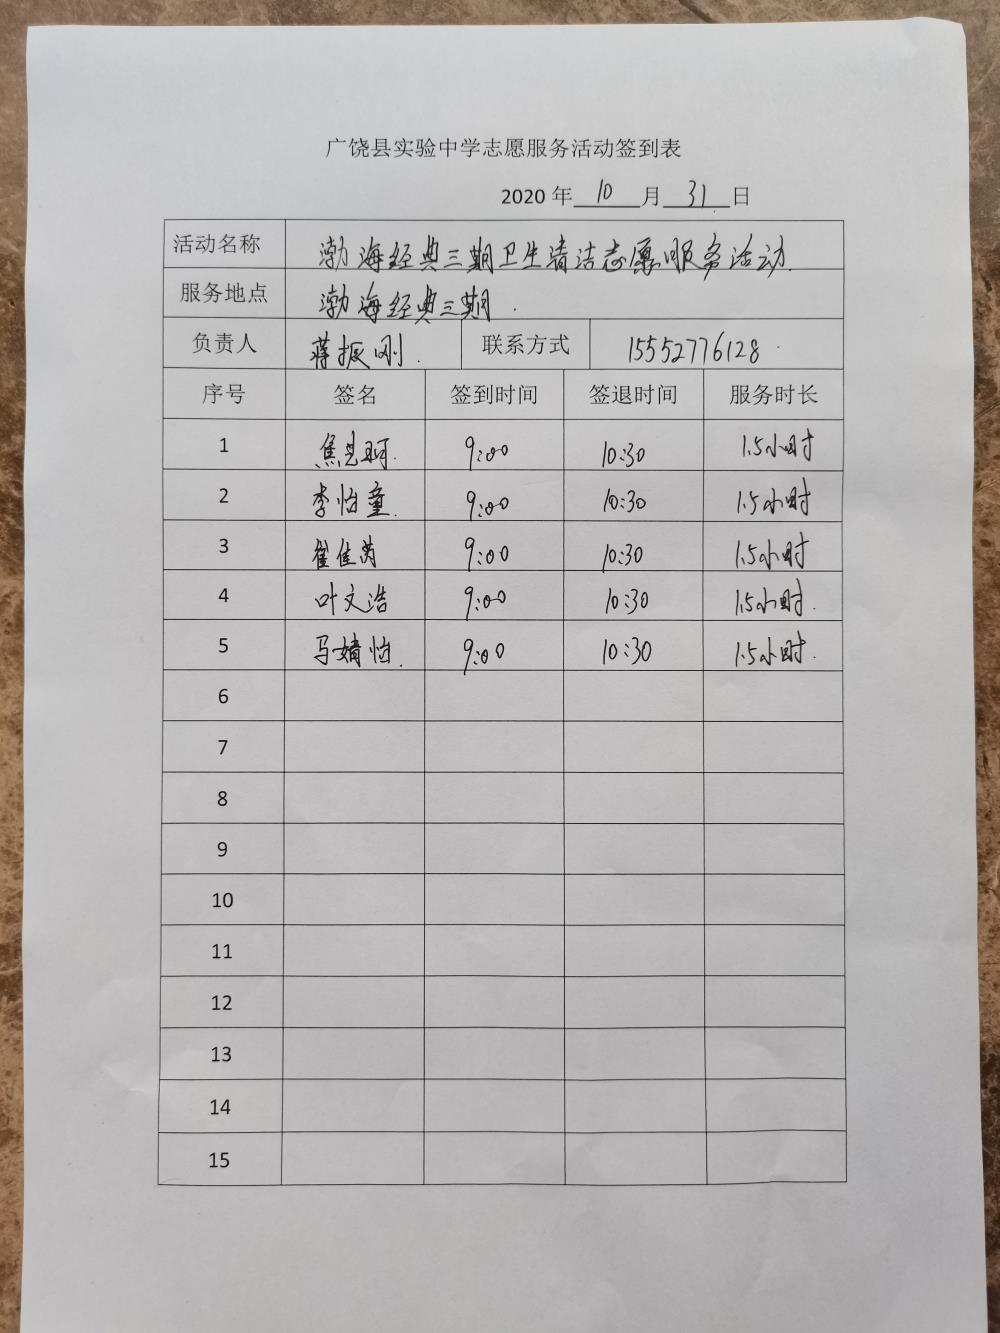 广饶县实验中学志愿服务活动签到表
2020 年 10 月 31 日
活动名称 渤海经典三期卫生清洁志愿服务活动
服务地点 渤海经典三期
负责人 蒋振刚 联系方式 15552776128
序号 签名 签到时间 签退时间 服务时长
1 9:00 10:30 1.5小时
2 李怡童 9:00 10:30 1.5小时
3 崔佳芮 9:00 10:30 1.5小时
4 叶文浩 9:00 10:30 1.5小时
5 马婧怡 9:00 10:30 1.5小时
6
7
8
9
10
11
12
13
14
15